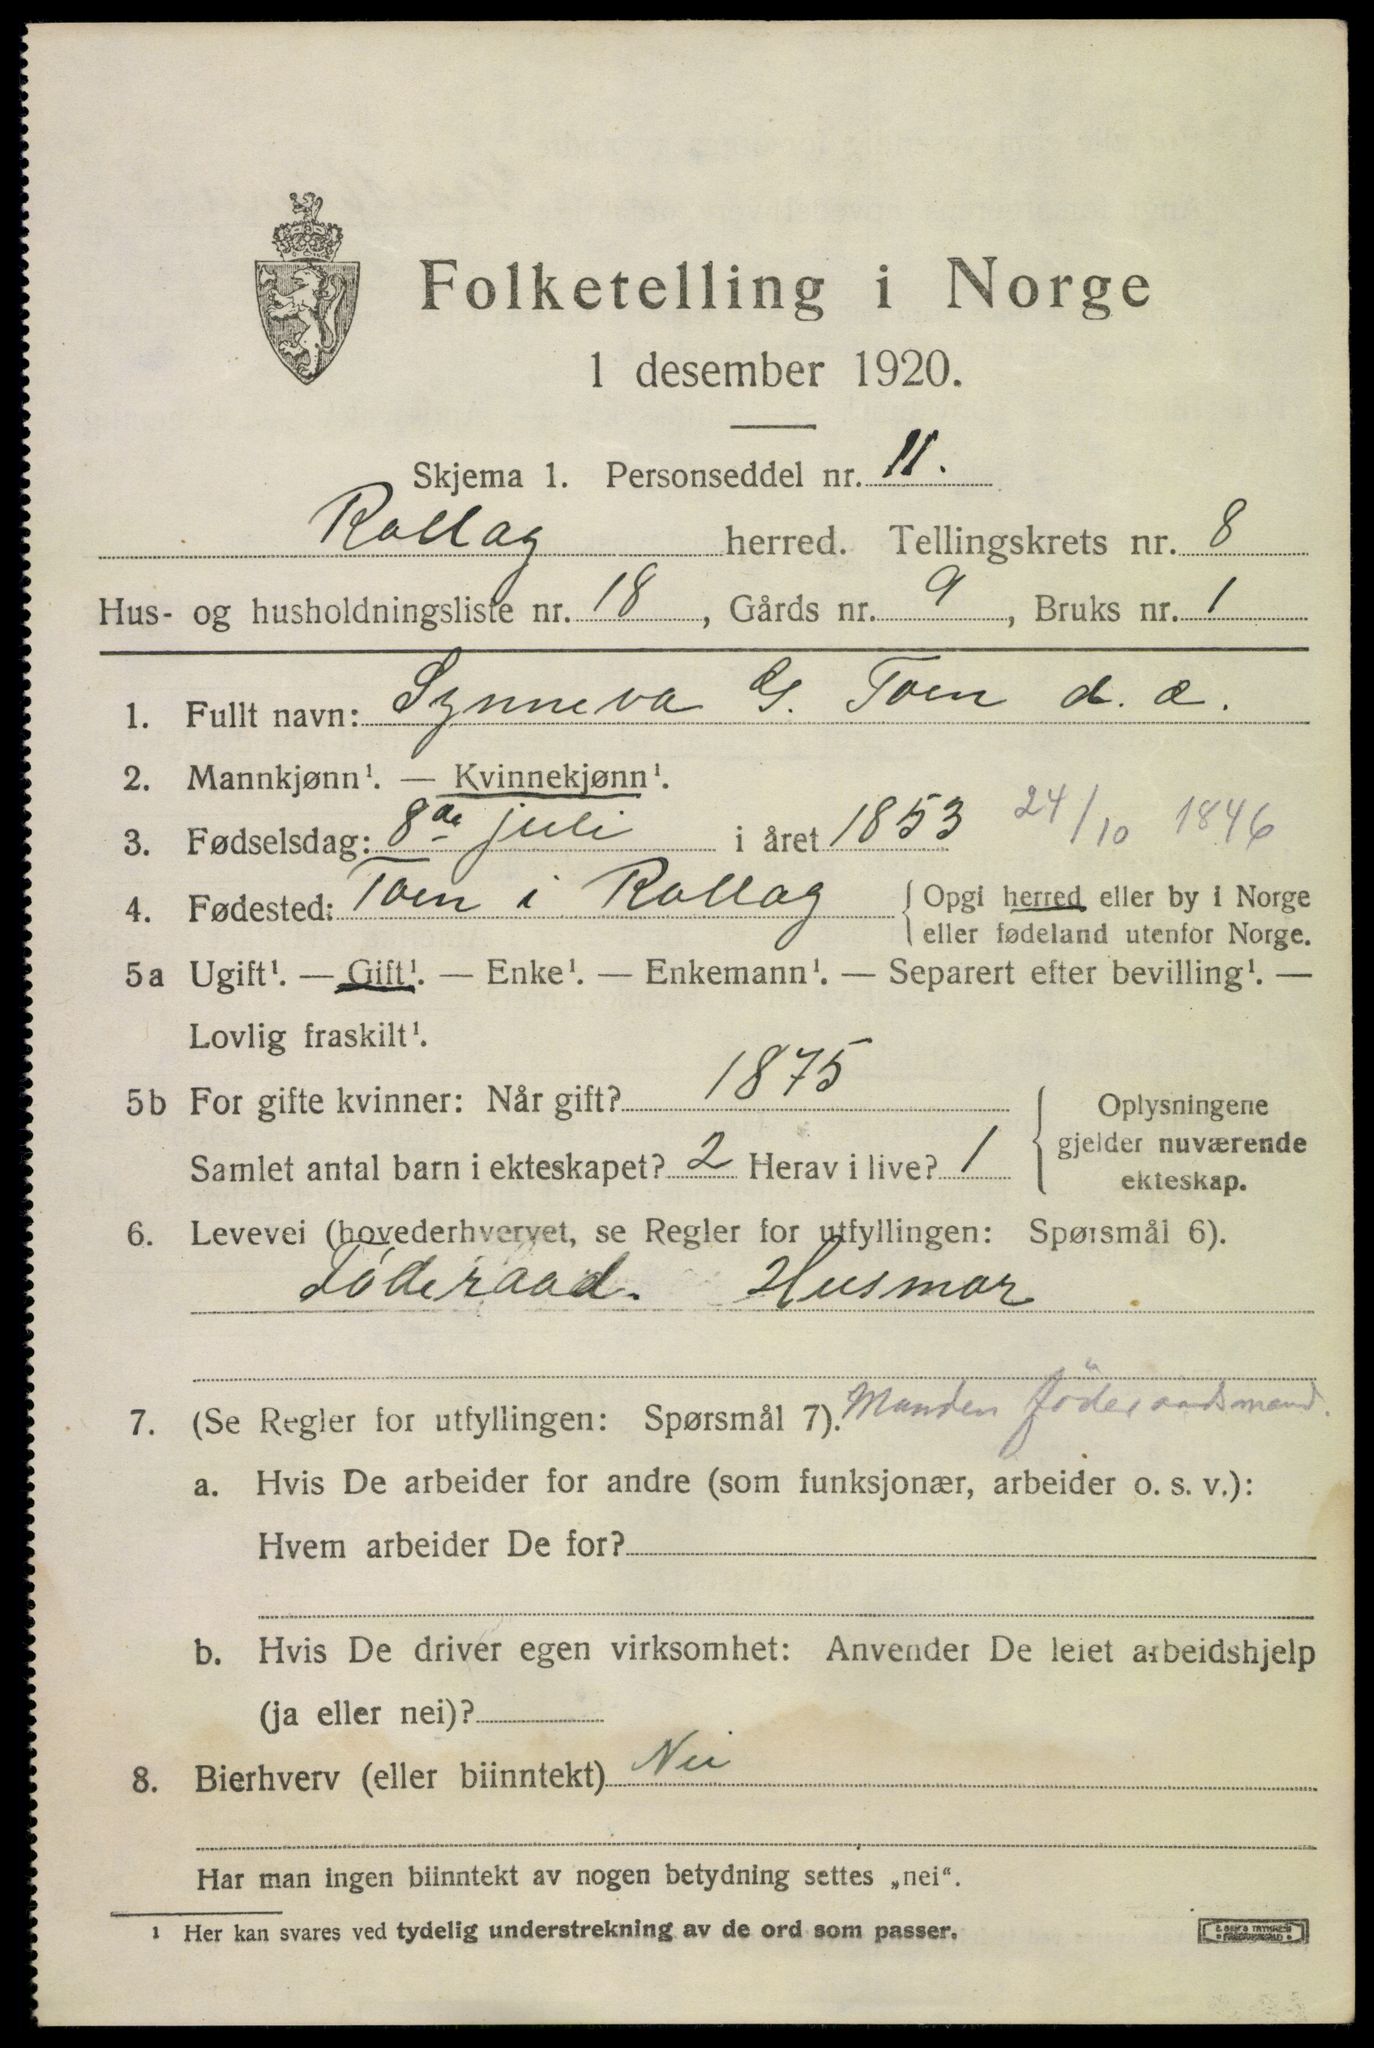 Folketelling i Norge
1 desember 1920.
Skjema 1. Personseddel nr. 11.
Rollag herred. Tellingskrets nr. 8
Hus- og husholdningsliste nr. 18, Gårds nr. 9, Bruks nr. 1
1. Fullt navn: Synneva G. Toen d. æ.
2. Mannkjønn¹. — Kvinnekjønn¹.
3. Fødselsdag: 8de juli i året 1853 24/10 1846
4. Fødested: Toen i Rollag { Opgi herred eller by i Norge
eller fødeland utenfor Norge.
5a Ugift¹. — Gift¹. — Enke¹. — Enkemann¹. — Separert efter bevilling¹. —
Lovlig fraskilt¹.
5b For gifte kvinner: Når gift? 1875
Samlet antal barn i ekteskapet? 2 Herav i live? 1
Oplysningene
gjelder nuværende
ekteskap.
6. Levevei (hovederhvervet, se Regler for utfyllingen: Spørsmål 6).
Föderaad. Husmor
7. (Se Regler for utfyllingen: Spørsmål 7). Manden föderaadsmand.
a. Hvis De arbeider for andre (som funksjonær, arbeider o. s. v.):
Hvem arbeider De for?
b. Hvis De driver egen virksomhet: Anvender De leiet arbeidshjelp
(ja eller nei)?
8. Bierhverv (eller biinntekt) Nei
Har man ingen biinntekt av nogen betydning settes „nei“.
¹ Her kan svares ved tydelig understrekning av de ord som passer.